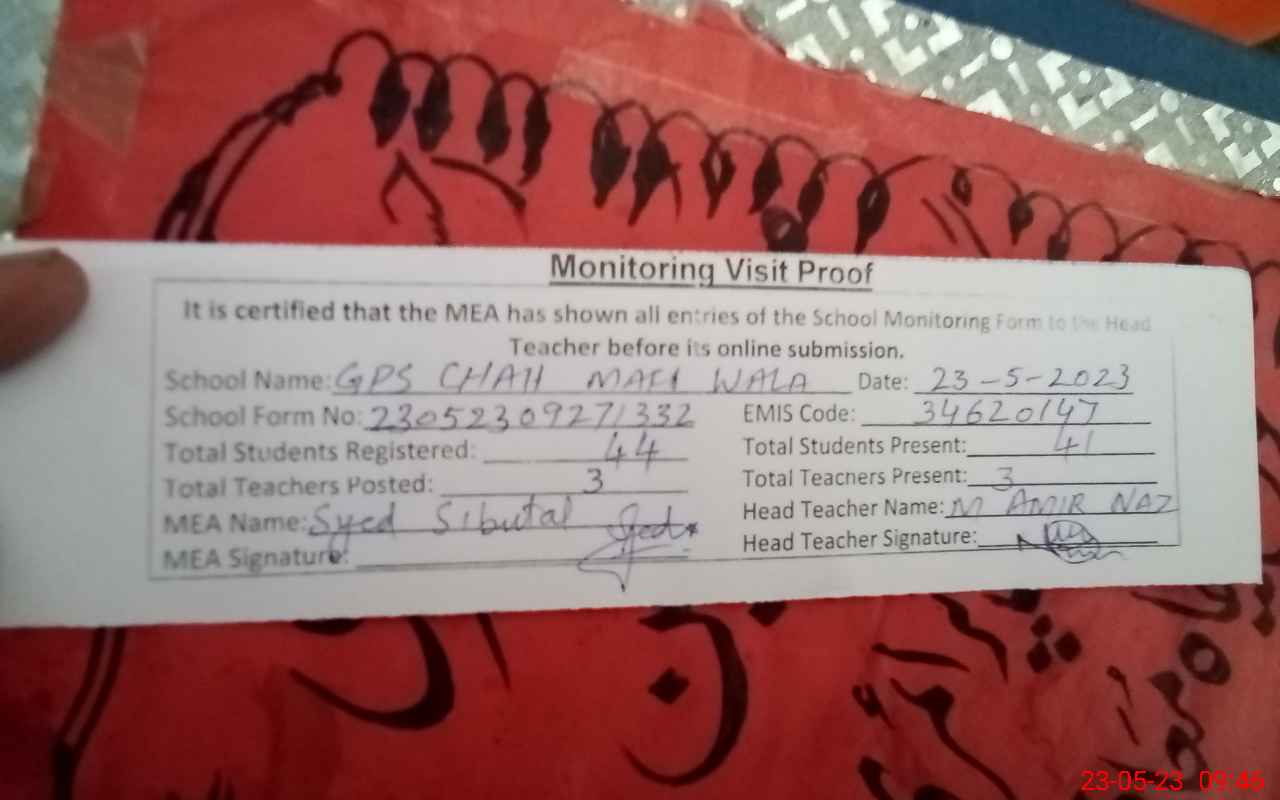 Monitoring Visit Proof
It is certified that the MEA has shown all entries of the School Monitoring Form to the Head
Teacher before its online submission.
School Name: GPS CHAH MAFI WALA Date: 23-5-2023
School Form No: 23052309271332 EMIS Code: 34620147
Total Students Registered: 44 Total Students Present: 41
Total Teachers Posted: 3 Total Teachers Present: 3
MEA Name: Syed Sibutal Head Teacher Name: M AMIR NAZ
MEA Signature: Head Teacher Signature:
23-05-23 09:46